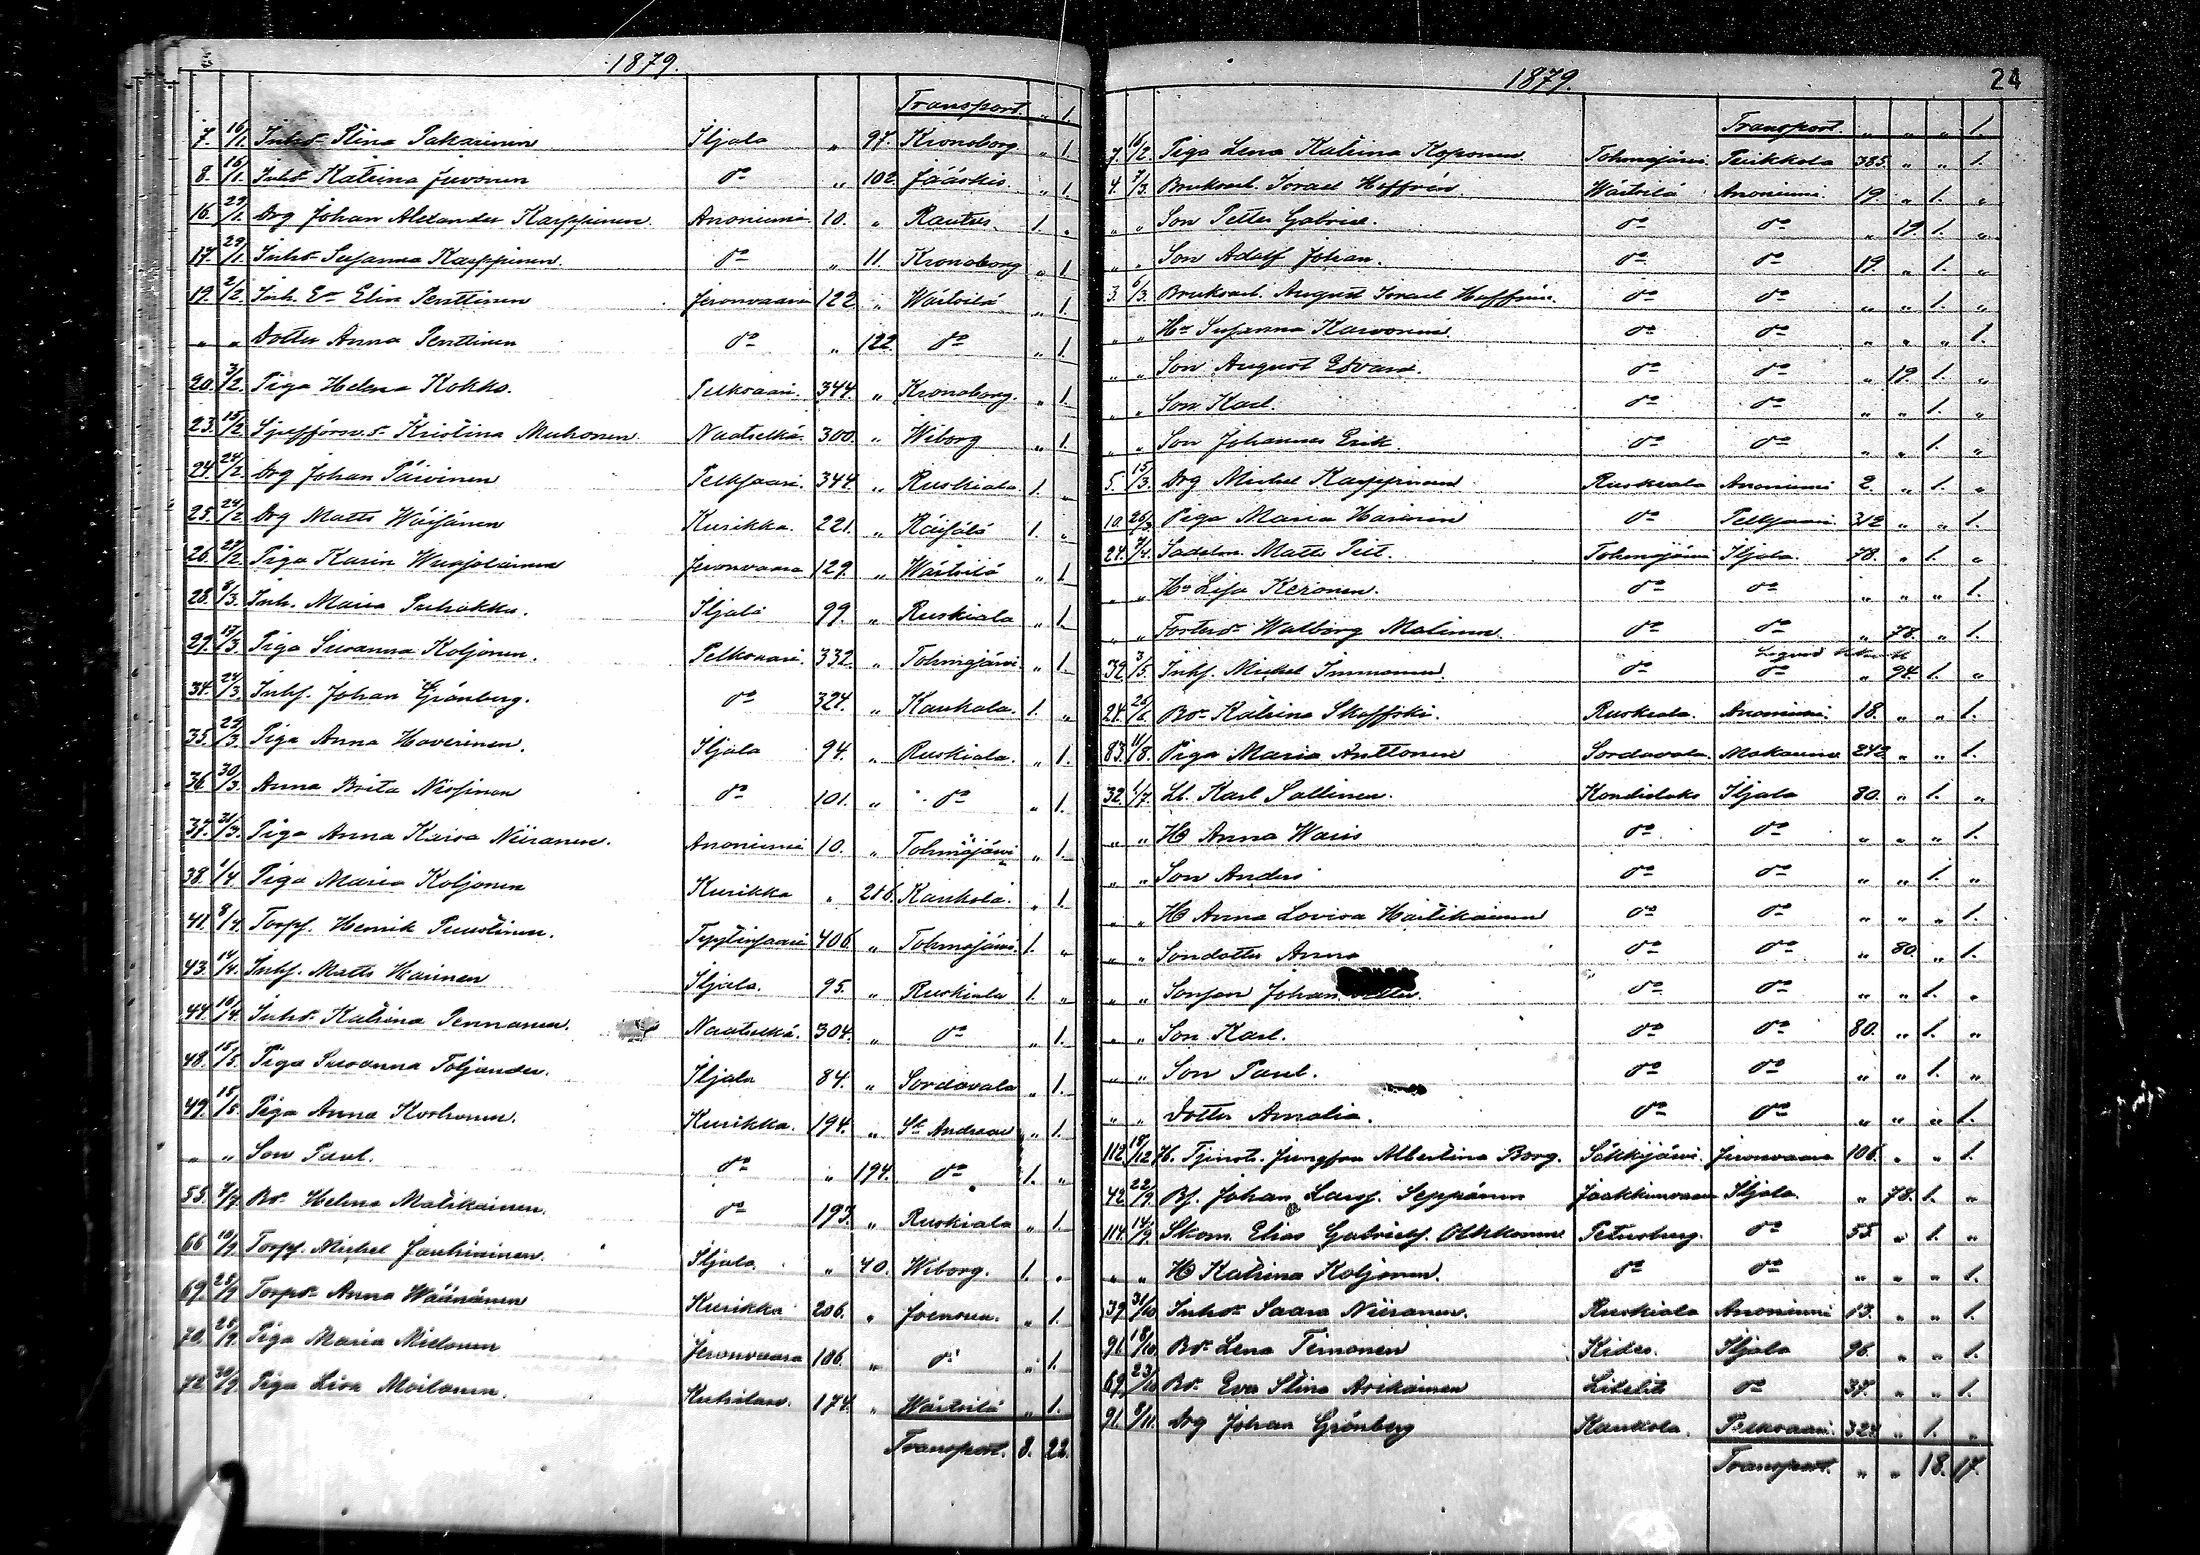 1879.
Transport. „ 1.
7. 16/1. Inhs. d. Stina Pakarinen Iljala „ 97. Kronoborg „ 1.
8. 16/1. Inhs. Katrina Juvonen do „ 102. Jääskis. „ 1.
16. 29/1. Drg Johan Alexander Karppinen. Anoniemi 10. „ Rautus. 1. „
17. 29/1. Inhs. Susanna Karppinen. do „ 11. Kronoborg „ 1.
19. 2/2. Inh. E:a Elin Penttinen Jeronvaara 122. „ Wärtsilä „ 1.
„ „ Dotter Anna Penttinen do „ 122. do „ 1.
20. 3/2. Piga Helena Kokko. Pelkvaari. 344. „ Kronoborg. „ 1.
23. 15/2 Kristina Muhonen. Naatselkä. 300. „ Wiborg „ 1.
24. 24/2. Drg Johan Päivinen Pelkjaari. 344. „ Ruskiala 1. „
25. 24/2 Drg Matts Wäisänen Kurikka. 221. „ Räisälä 1. „
26. 27/2 Piga Karin Jeronvaara 129. „ Wärtsilä „ 1.
28. 8/3. Inh. Maria Puhakka. Iljala 99. „ Ruskiala „ 1.
29. 17/3. Piga Susanna Koljonen. Pelkvaari. 332. „ Tohmajärvi. „ 1.
34. 24/3. Inhs. Johan Grönberg. do 324. „ Kaukola. 1. „
35. 29/3. Piga Anna Haverinen. Iljala 94. „ Ruskiala. „ 1.
36. 30/3. Anna Brita Nissinen do 101. „ do „ 1.
37. 31/3. Piga Anna Kaisa Niiranen. Anoniemi 10. „ Tohmajärvi „ 1.
38. 1/4. Piga Maria Koljonen Kurikka „ 216. Kaukola. „ 1.
41. 8/4. Torpf. Henrik Puustinen. 406. „ Tohmajärvi 1. „
43. 14/4. Inhs. Matts Harinen Iljala. 95. „ Ruskiala 1. „
44. 16/4. Inhs. Katrina Pennanen. Naatselkä. 304. „ do „ 1.
48. 15/5. Piga Susanna Toljander. Iljala 84. „ Sordavala „ 1.
49. 15/5. Piga Anna Korhonen. Kurikka. 194. „ St Andreae „ 1.
„ „ Son Paul. do „ 194. do 1. „
55. 7/7. Bd. Helena Matikainen. do 193. „ Ruskiala „ 1.
66 10/9. Torpf. Michel Jauhiainen. Iljala. „ 40. Wiborg. 1. „
69. 25/9 Torpd. Anna Wäänänen Kurikka 206. „ Joensuu. „ 1.
70. 25/9. Piga Maria Mielonen Jeronvaara 106. „ do „ 1.
72. 30/9. Piga Lisa Moilanen. 174. „ Wärtsilä „ 1.
Transport. 8. 22.
1879. 24
Transport. „ „ „ 1.
7. 16/2. Piga Lena Katrina Koponen Tohmajärvi Peikkola 385. „ „ 1.
4. 7/3. Bruksarb. Israel Hoffrén Wärtsilä Anoniemi. 19. „ 1. „
„ „ Son Petter Gabriel. do do „ 19. 1. „
„ „ Son Adolf Johan. do do 19. „ 1. „
3. 6/3. Bruksarb. August Israel Hoffrén. do do „ „ 1. „
„ „ Hu Susanna Karvonen. do do „ „ „ 1.
„ „ Son August Edvard. do do „ 19. 1. „
„ „ Son Karl. do do „ „ 1. „
„ „ Son Johannes Erik. do do „ „ 1. „
5. 15/3. Drg Michel Karppinen Ruskiala Anoniemi 2. „ 1. „
10. 26/3 Piga Maria Harinen do Pelkjaari 312 „ „ 1.
24. 7/4. Sadelm. Matts Piit. Tohmajärvi Iljala. 78. „ 1. „
„ „ Hu Lisa Keronen. do do „ „ „ 1.
„ „ Fosterd. Walborg Malinen. do do „ 78. „ 1.
32. 3/5. Inhs. Michel Immonen. do do „ 94. 1. „
24. 26/6. Bd. Katrina Skoffski. Ruskiala. Anoniemi. 18. „ „ 1.
83. 11/8. Piga Maria Anttonen Sordavala 242. „ „ 1.
32. 1/7. Lb. Karl Sallinen. Kondiolaks Iljala 80. „ 1. „
„ „ Hu Anna Waris do do „ „ „ 1.
„ „ Son Anders do do „ „ 1. „
„ „ Hu Anna Lovisa do do „ „ „ 1.
„ „ Sondotter Anna do do „ 80. „ 1.
„ „ Sonson Johan do do „ „ 1. „
„ „ Son Karl. do do 80. „ 1. „
„ „ Son Paul. do do „ „ 1. „
„ „ Dotter Amalia. do do „ „ „ 1.
112. 18/12 Jungfru Albertina Borg. Säkkijärvi. Jeronvaara 106. „ „ 1.
42. 22/9. Bf. Johan Larss. Seppänen Jaakkimvaara Iljala. „ 78. 1. „
114. 14/9. Skom. Elias Gabrielss. Olkkonen Petersburg. do 55. „ 1. „
„ „ Hu Katrina Koljonen. do do „ „ „ 1.
39. 31/10 Inhs. Saara Niiranen. Ruskiala Anoniemi 13. „ „ 1.
91. 18/10. Bd. Lena Timonen Kides. Iljala 96. „ „ 1.
69. 23/10 Bd. Eva Stina Asikainen Libelits do 37. „ „ 1.
91. 8/11. Drg Johan Grönberg Kaukola. Pelkvaari. 324 „ 1. „
Transport. „ „ 18. 17.